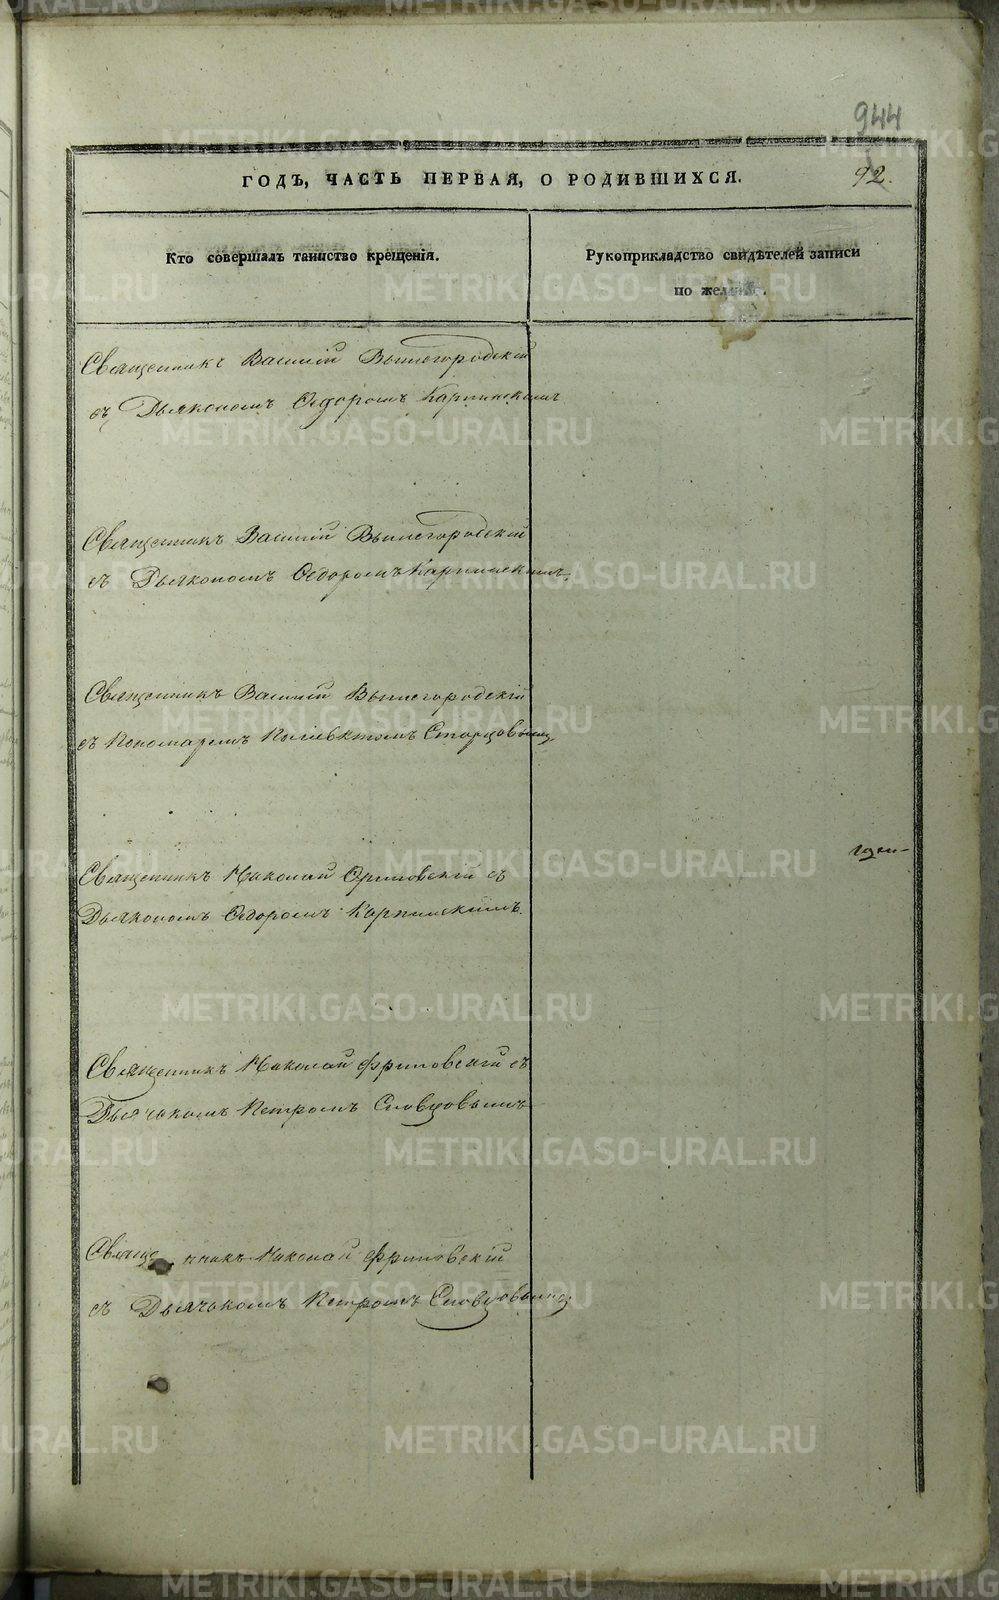 944
ГОДЪ, ЧАСТЬ ПЕРВАЯ, О РОДИВШИХСЯ.
92.
Кто совершалъ таинство крещенія.
Рукоприкладство свидѣтелей записи
по жел
Священникъ Василій Вышегородскій
съ Дьякономъ Ѳедоромъ Карпинскимъ
Священникъ Василій Вышегородскій
съ Дьякономъ Ѳедоромъ Карпинскимъ.
Священникъ Василій Вышегородскій
съ Пономаремъ Старцовымъ
Священникъ Николай Фриловскій съ
Дьякономъ Ѳедоромъ Карпинскимъ.
Священникъ Николай Фриловскій съ
Дьячкомъ Петромъ Словцовымъ
Священникъ Николай Фриловскій
съ Дьячкомъ Петромъ Словцовымъ
METRIKI.GASO-URAL.RU